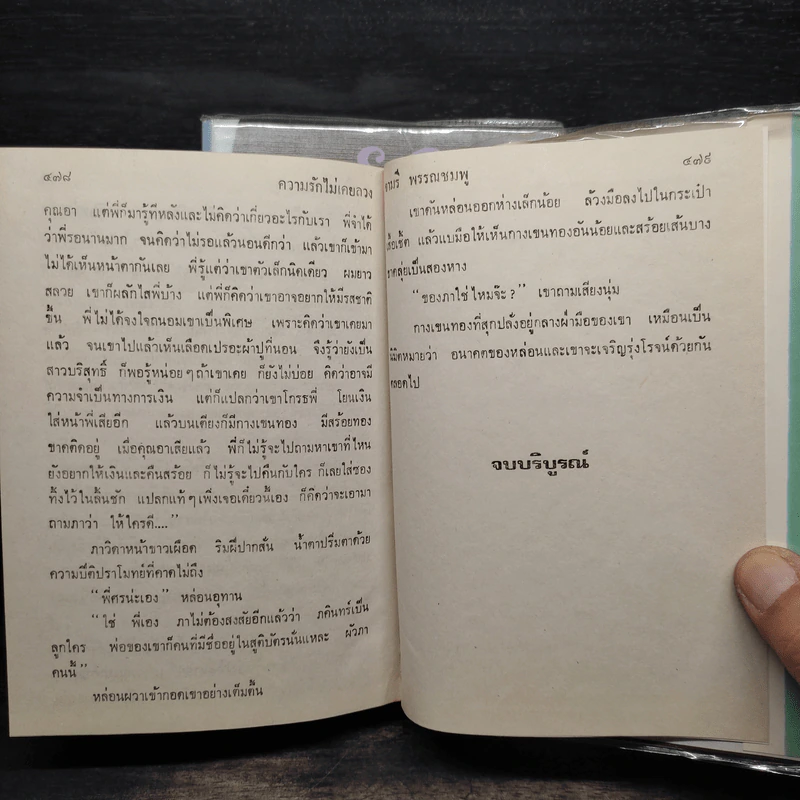 ๔๗๘
ความรักไม่เคยลวง
คุณอา แต่พี่ก็มารู้ทีหลังและไม่คิดว่าเกี่ยวอะไรกับเรา พี่จำได้
ว่าพี่รอนานมาก จนคิดว่าไม่รอแล้วนอนดีกว่า แล้วเขาก็เข้ามา
ไม่ได้เห็นหน้าตากันเลย พี่รู้แต่ว่าเขาตัวเล็กนิดเดียว ผมยาว
สลวย เขาก็ผลักไสพี่บ้าง แต่พี่ก็คิดว่าเขาอาจอยากให้มีรสชาติ
ขึ้น พี่ไม่ได้จงใจถนอมเขาเป็นพิเศษ เพราะคิดว่าเขาเคยมา
แล้ว จนเขาไปแล้วเห็นเลือดเปรอะผ้าปูที่นอน จึงรู้ว่ายังเป็น
สาวบริสุทธิ์ ก็พอรู้หน่อยๆ ถ้าเขาเคย ก็ยังไม่บ่อย คิดว่าอาจมี
ความจำเป็นทางการเงิน แต่ก็แปลกว่าเขาโกรธพี่ โยนเงิน
ใส่หน้าพี่เสียอีก แล้วบนเตียงก็มีกางเขนทอง มีสร้อยทอง
ขาดติดอยู่ เมื่อคุณอาเสียแล้ว พี่ก็ไม่รู้จะไปถามหาเขาที่ไหน
ยังอยากให้เงินและคืนสร้อย ก็ไม่รู้จะไปคืนกับใคร ก็เลยใส่ซอง
ทิ้งไว้ในลิ้นชัก แปลกแท้ๆ เพิ่งเจอเดี๋ยวนี้เอง ก็คิดว่าจะเอามา
ถามภาว่า ให้ใครดี....”
ภาวิดาหน้าขาวเผือด ริมฝีปากสั่น น้ำตาปริ่มตาด้วย
ความปีติปราโมทย์ที่คาดไม่ถึง
“พี่ศรน่ะเอง” หล่อนอุทาน
“ใช่ พี่เอง ภาไม่ต้องสงสัยอีกแล้วว่า ภคินทร์เป็น
ลูกใคร พ่อของเขาก็คนที่มีชื่ออยู่ในสูติบัตรนั่นแหละ ผัวภา
คนนี้”
หล่อนผวาเข้ากอดเขาอย่างเต็มตื้น
พรรณชมพู
๔๗๙
เขาดันหล่อนออกห่างเล็กน้อย ล้วงมือลงไปในกระเป๋า
เสื้อเชิ้ต แล้วแบมือให้เห็นกางเขนทองอันน้อยและสร้อยเส้นบาง
ขาดลุ่ยเป็นสองหาง
“ของภาใช่ไหมจ๊ะ?” เขาถามเสียงนุ่ม
กางเขนทองที่สุกปลั่งอยู่กลางฝ่ามือของเขา เหมือนเป็น
นิมิตหมายว่า อนาคตของหล่อนและเขาจะเจริญรุ่งโรจน์ด้วยกัน
ตลอดไป
จบบริบูรณ์